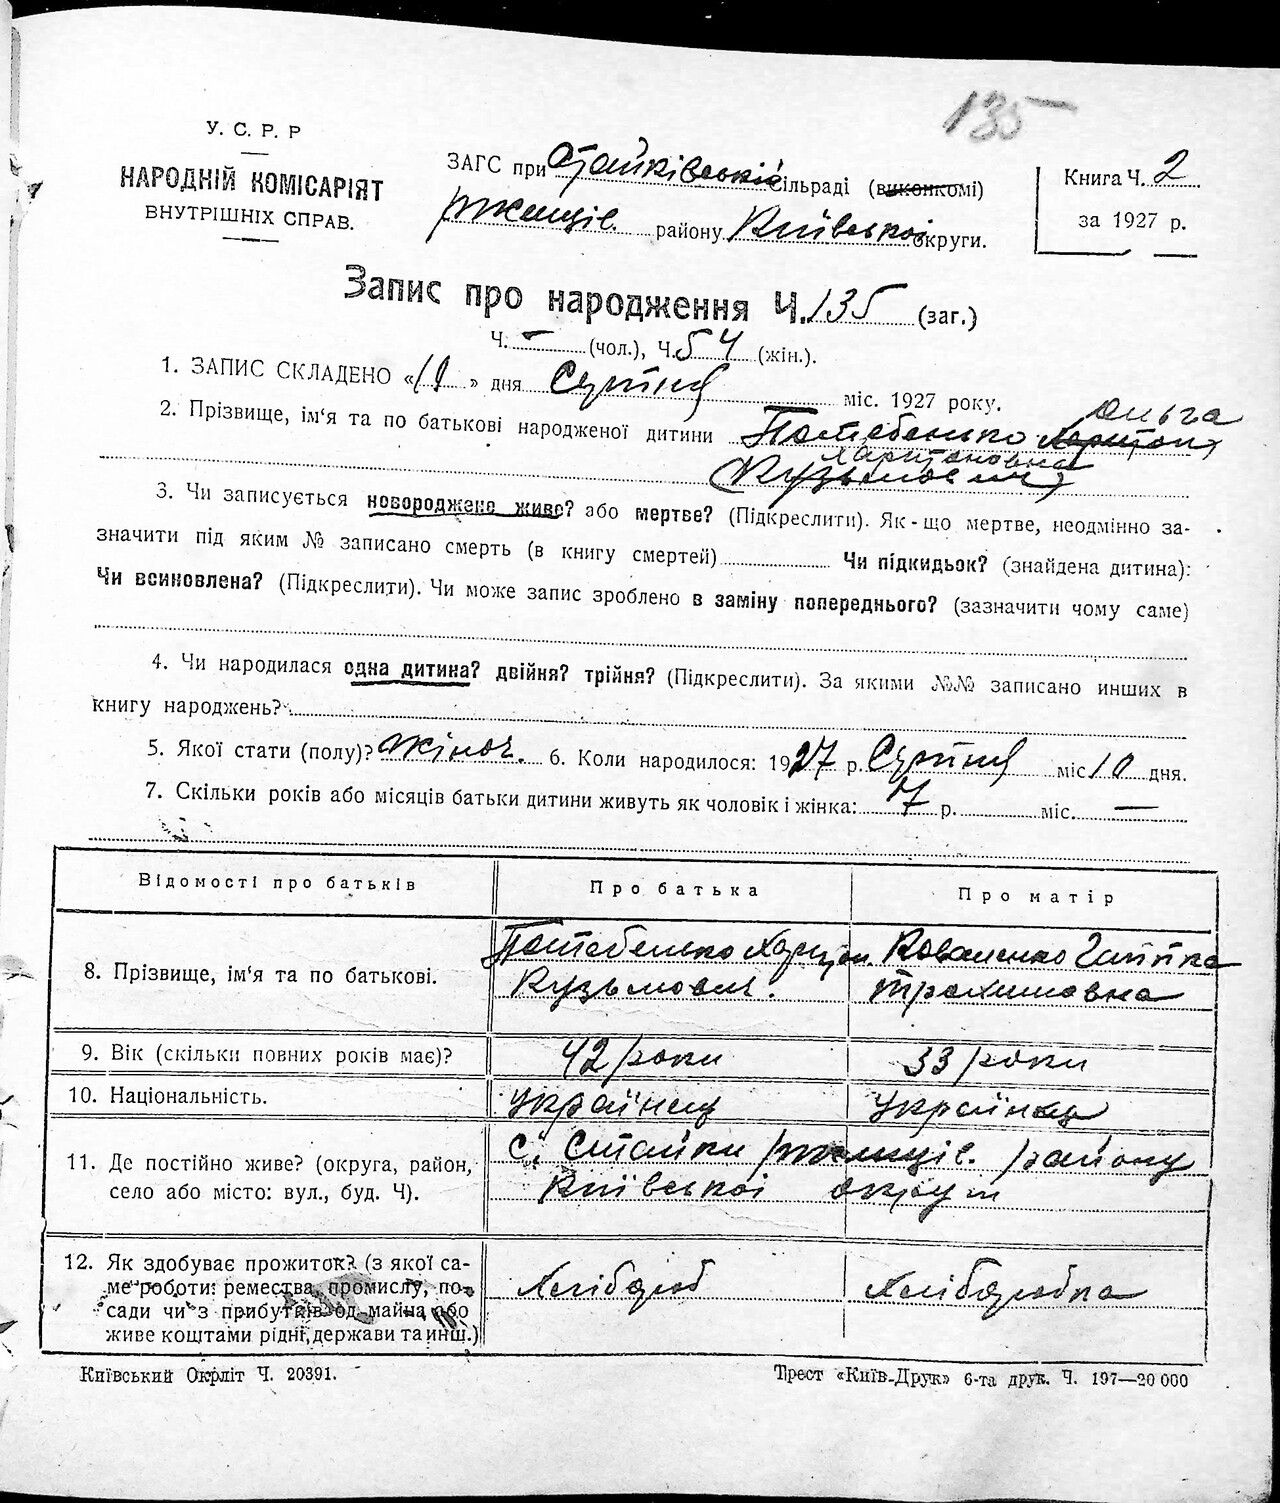 135
У. С. Р. Р
НАРОДНІЙ КОМІСАРІЯТ
ВНУТРІШНІХ СПРАВ.
ЗАГС при Стайківській сільраді (виконкомі)
Ржищів. району Київської округи.
Книга Ч. 2
за 1927 р.
Запис про народження Ч. 135 (заг.)
Ч. – (чол.), Ч. 54 (жін.).
1. ЗАПИС СКЛАДЕНО « » дня Серпня міс. 1927 року.
Ольга
2. Прізвище, ім'я та по батькові народженої дитини Потебенько Харитон
Харитоновна
Кузьмович
3. Чи записується новороджене живе? або мертве? (Підкреслити). Як-що мертве, неодмінно за-
значити під яким № записано смерть (в книгу смертей) Чи підкидьок? (знайдена дитина):
Чи всиновлена? (Підкреслити). Чи може запис зроблено в заміну попереднього? (зазначити чому саме)
4. Чи народилася одна дитина? двійня? трійня? (Підкреслити). За якими №№ записано инших в
книгу народжень?
5. Якої стати (полу)? жіноч. 6. Коли народилося: 1927 р. Серпня міс 10 дня.
7. Скільки років або місяців батьки дитини живуть як чоловік і жінка: 7 р. міс. —
Відомості про батьків
Про батька
Про матір
8. Прізвище, ім'я та по батькові.
Потебенько Харитон.
Кузьмович.
Коваленко Гаппка
Трохимовна
9. Вік (скільки повних років має)?
42 роки
33 роки
10. Національність.
Українец
Українка
11. Де постійно живе? (округа, район,
село або місто: вул., буд. Ч).
с. Стайки Ржищів. району
Київської округи
12. Як здобуває прожиток? (з якої са-
ме роботи: ремества, промислу, по-
сади чи з прибутків од майна або
живе коштами рідні, держави та инш.)
Хлібороб
Хліборобка
Київський Окрліт Ч. 20391.
Трест «Київ-Друк» 6-та друк. Ч. 197—20 000